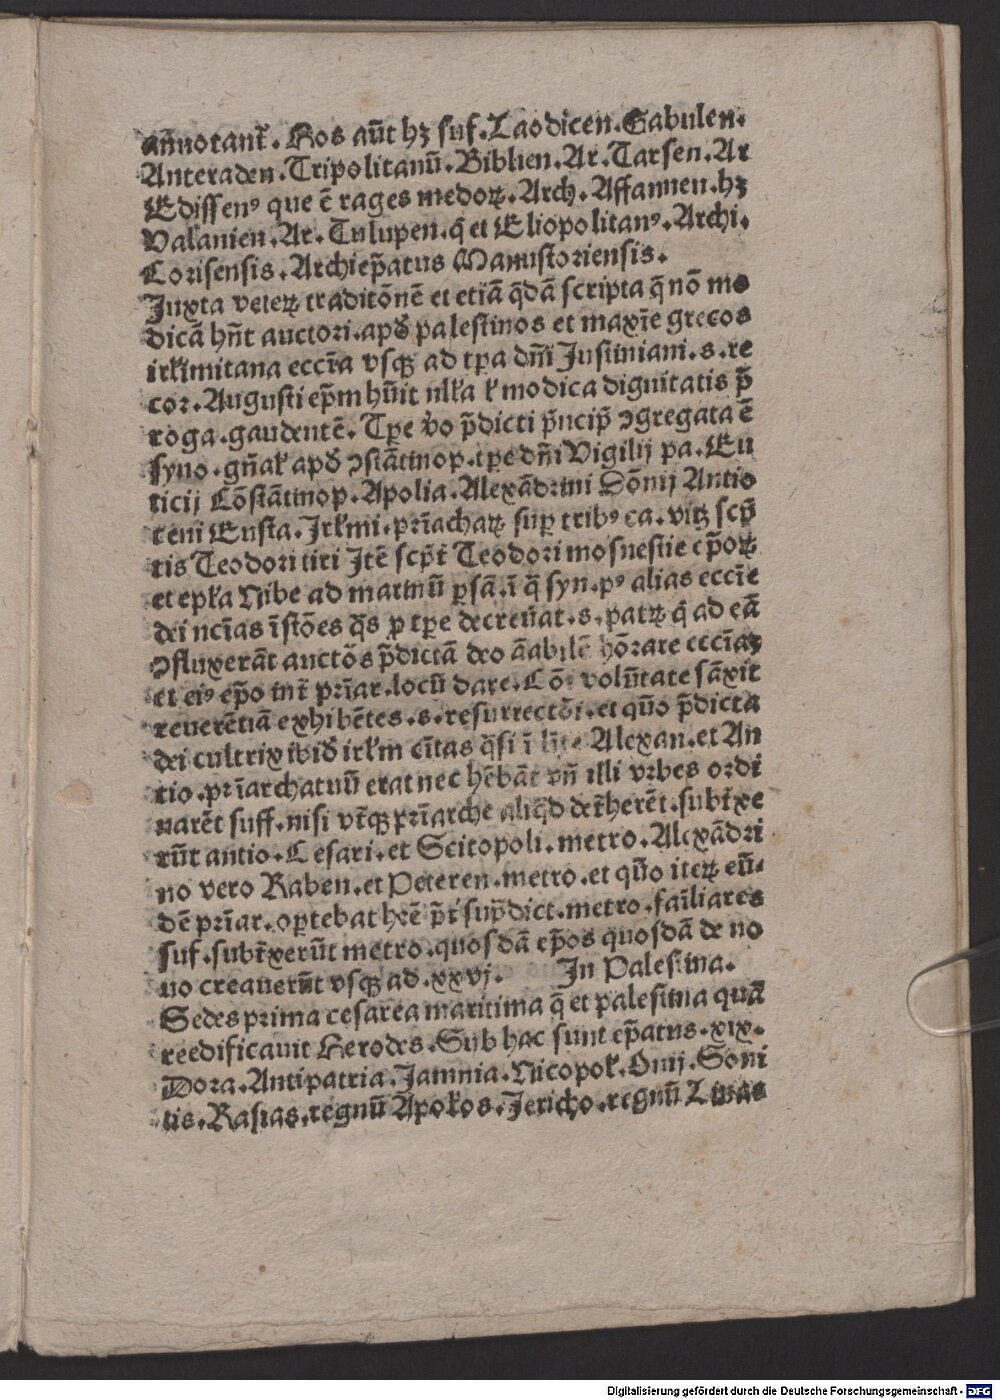 an̄notant᷑. Ros aūt hꝫ suf. Laodicen. Gabulen.
Anteraden. Tripolitanū. Biblien. Ar. Tarsen. Ar
Edissenꝰ que ē rages medoꝝ. Arch. Affamien. hꝫ
Valanien. Ar. Tulupen. q̄ et Eliopolitanꝰ. Archi.
Corisensis. Archiep̄atus Manustoriensis.
Juxta veteꝝ traditōnē et etiā q̄dā scripta q̄ nō mo
dicā hn̄t auctori. apđ palestinos et maxīe grecos
irłimitana eccīa vsqꝫ ad tꝑa dm̄i Justiniani. s. re
cor. Augusti ep̄m hūit nłła ł modica dignitatis p̄
roga. gaudentē. Tꝑe v̊o p̄dicti p̄ncip̄ ꝯgregata ē
syno. gn̄ał apđ ꝯstātinop. tꝑe dn̄i Vigilij pa. Eu
ticij Cōstātinop. Apolia. Alexādrini Dōnij Antio
ceni Eusta. Jrłmi. pr̄iachaꝝ suꝑ tribꝰ ca. viꝫ scp̄
tis Teodori tiri Jtē scp̄t᷑ Teodori mosuestie ep̄oꝝ
et epła Nibe ad marinū ꝑsā. ī q̄ syn. pꝰ alias eccīe
dei nc̄ias īstōes q̄s ꝓ tꝑe decreūat. s. patꝝ q̄ ad eā
ꝯfluxerāt auctōs p̄dictā deo āabilē hōrare eccīaꝫ
et eiꝰ ep̄o int᷑ pr̄iar. locū dare. Cōi volūtate sāxit
reuerētiā exhibētes. s. resurrectōi. et qūo p̄dicta
dei cultrix ibiđ irłm cītas q̄si ī Alexan. et An
tio. pr̄iarchatuū erat nec hēbāt vn̄ illi vrbes ordi
narēt suff. nisi vt᷑qꝫ pr̄iarche aliq̄d det᷑herēt. subt᷑xe
rūt antio. Cesari. et Scitopoli. metro. Alexādri
no vero Raben. et Peteren. metro. et qūo iteꝝ eū-
dē pr̄iar. oꝑtebat hrē p̄t᷑ sup̄dict. metro. fāiliares
suf. subt᷑xerūt metro. quosdā ep̄os quosdā de no
uo creauerūt vsqꝫ ad. xxvj. In Palestina.
Sedes prima cesarea maritima q̄ et palestina quā
reedificauit Herodes. Sub hac sunt ep̄atus. xix.
Dora. Antipatria. Jamnia. Nicopoł. Onij. Soni
tis. Rasias. regnū Apołos. Jericho. regnū Liuas